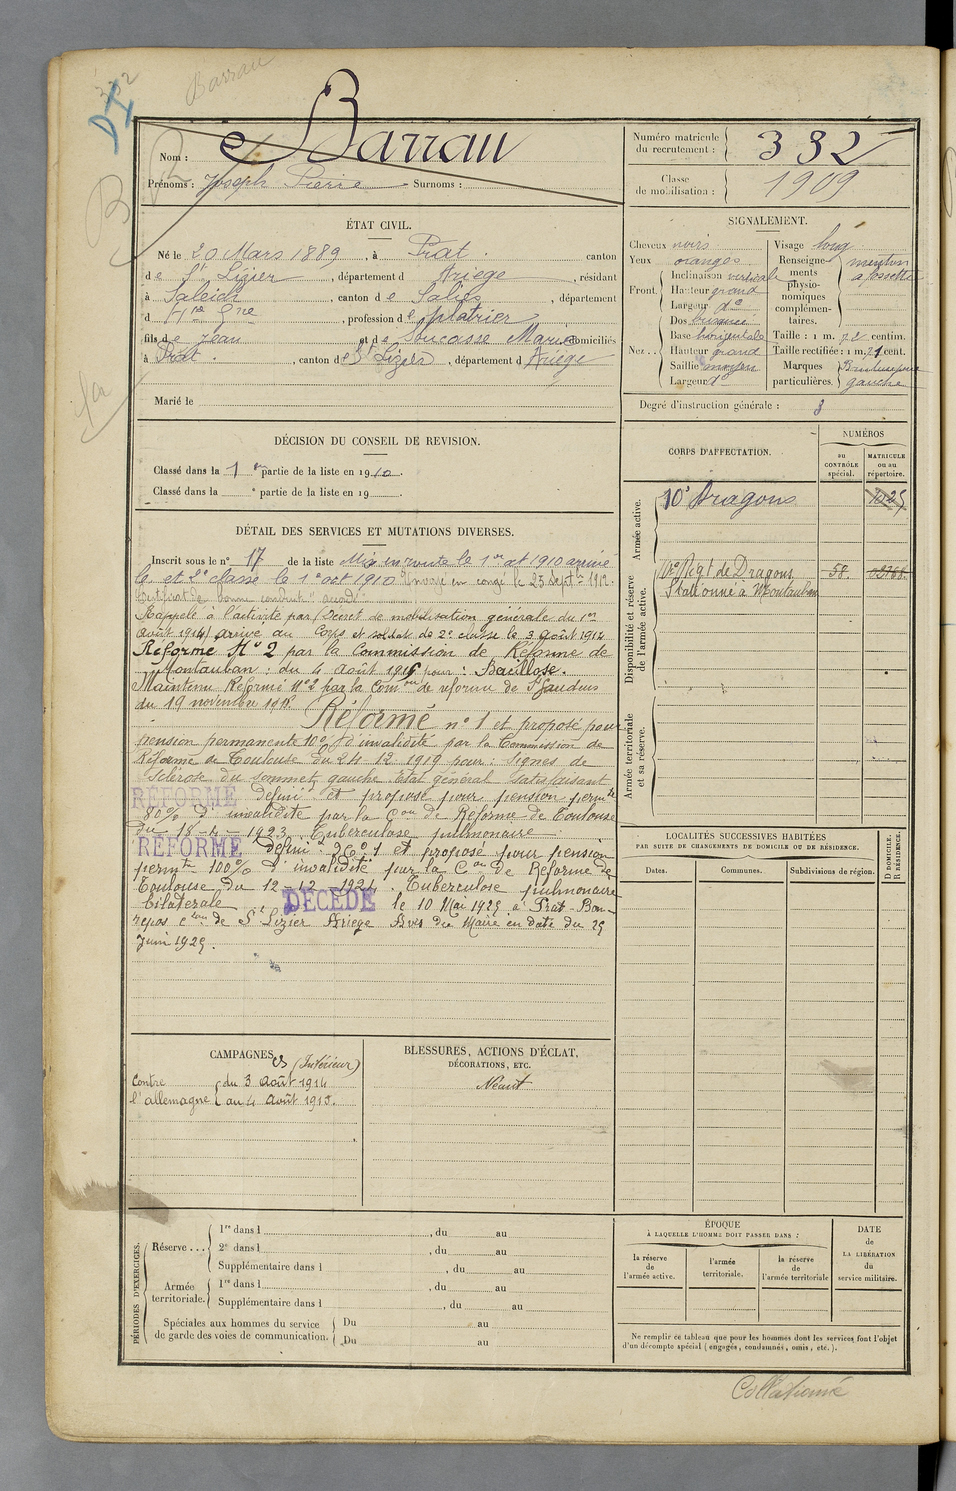 Barrau
Nom : Barrau
Prénoms : Joseph Pierre Surnoms :
Numéro matricule du recrutement : 332
Classe de mobilisation : 1909
ÉTAT CIVIL.
Né le 20 Mars 1889, à Prat. canton
de St Lizier, département d Ariège, résidant
à Saleich, canton de Salies, département
d Hte Gne, profession de plâtrier
fils de Jean et de Soucasse Marie domiciliés
à Prat., canton de St Lizier, département d Ariège
Marié le
SIGNALEMENT.
Cheveux noirs
Yeux oranges
Front. Inclinaison verticale
Hauteur grand
Largeur do
Dos busqué
Nez.. Base horizontale
Hauteur grand
Saillie moyen
Largeur do
Visage long
Renseignements physionomiques complémentaires. menton à fossette
Taille : 1 m. 72 centim.
Taille rectifiée : 1 m. 71 cent.
Marques particulières. gauche
Degré d'instruction générale : 3
DÉCISION DU CONSEIL DE REVISION.
Classé dans la 1ère partie de la liste en 1910.
Classé dans la e partie de la liste en 19 .
CORPS D'AFFECTATION.
NUMÉROS
AU CONTRÔLE spécial.
MATRICULE ou au répertoire.
Armée active.
10e Dragons 1025
Disponibilité et réserve de l'armée active.
10e Rigt de Dragons 58.
Stationné à Montauban
Armée territoriale et sa réserve.
DÉTAIL DES SERVICES ET MUTATIONS DIVERSES.
Inscrit sous le n° 17 de la liste Mis en route le 1er oct 1910 arrivé
le et 2e classe le 1er oct 1910 Envoyé en congé le 25 Septre 1912.
Certificat de bonne conduite "accordé"
Rappelé à l'activité par (Décret de mobilisation générale du 1er
Août 1914) arrivé au Corps et soldat de 2e classe le 3 Août 1914
Réformé N° 2 par la Commission de Réforme de
Montauban : du 4 Août 1915 pour : Bacillose.
Maintenu Réformé N°2 par la Comon de réforme de St Gaudens
du 19 novembre 191
Réformé n° 1 et proposé pour
pension permanente 10% d'invalidité par la Commission de
Réforme de Toulouse du 24-12 1919 pour : Signes de
Sclérose du sommet gauche Etat général satisfaisant
RÉFORMÉ défini et proposé pour pension permte
80% d'invalidité par la Con de Réforme de Toulouse
du 18-4-1923. Tuberculose pulmonaire
RÉFORMÉ défini n° 1 et proposé pour pension
permte 100% d'invalidité par la Con de Réforme de
Toulouse du 12-12 1924. Tuberculose pulmonaire
bilatérale DÉCÉDÉ le 10 Mai 1925 à Prat-Bon-
repos cton de St Lizier Ariège Avis du Maire en date du 25
Juin 1925.
LOCALITÉS SUCCESSIVES HABITÉES
PAR SUITE DE CHANGEMENTS DE DOMICILE OU DE RÉSIDENCE.
Dates. Communes. Subdivisions de région. D DOMICILE. R RÉSIDENCE.
CAMPAGNES (Intérieur)
Contre l'allemagne du 3 Août 1914
au 4 Août 1915.
BLESSURES, ACTIONS D'ÉCLAT,
DÉCORATIONS, ETC.
Néant
PÉRIODES D'EXERCICES.
Réserve ... 1re dans l , du au
2e dans l , du au
Supplémentaire dans l , du au
Armée territoriale. 1re dans l , du au
Supplémentaire dans l , du au
Spéciales aux hommes du service de garde des voies de communication. Du au
Du au
ÉPOQUE
À LAQUELLE L'HOMME DOIT PASSER DANS :
la réserve de l'armée active.
l'armée territoriale.
la réserve de l'armée territoriale
DATE DE LA LIBÉRATION du service militaire.
Ne remplir ce tableau que pour les hommes dont les services font l'objet
d'un décompte spécial (engagés, condamnés, omis, etc.).
Collationné